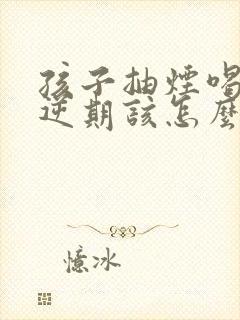 孩子抽煙喝
逆期該怎麼
憶冰